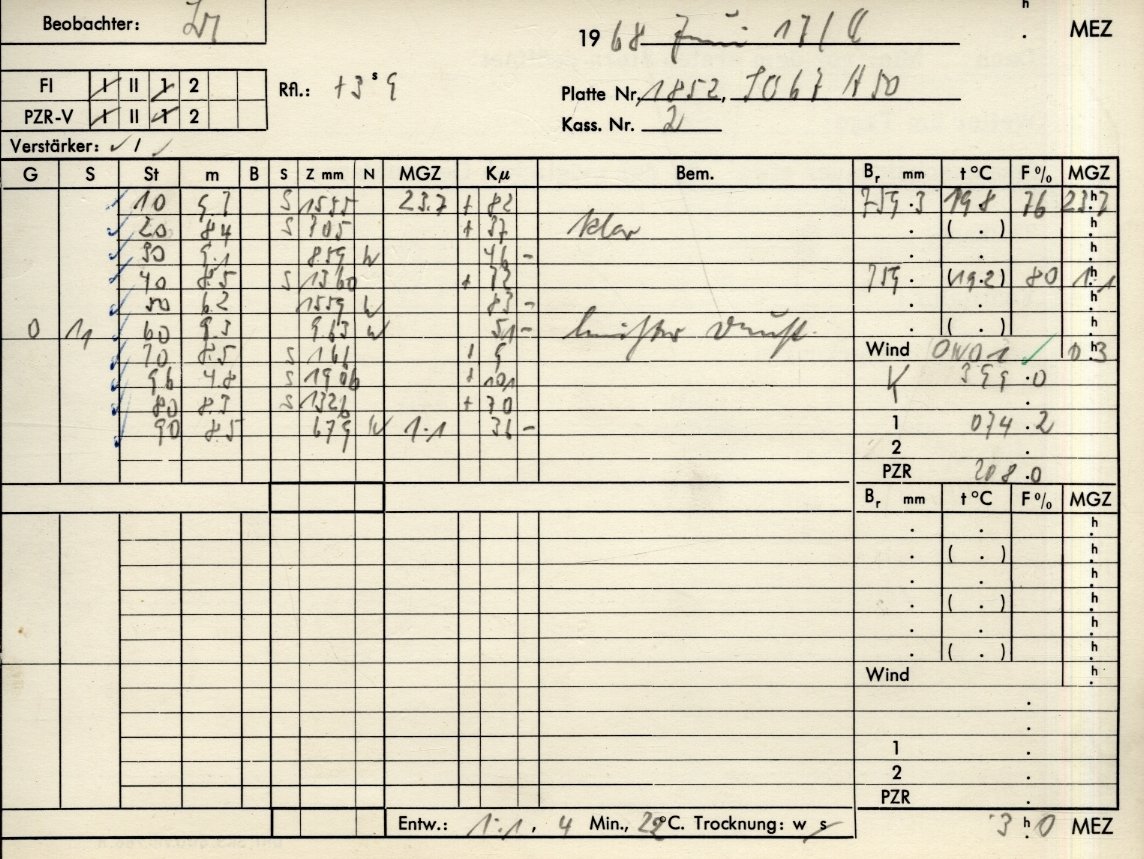 Beobachter:
h
1968 Juni 17/
. MEZ
FI I II 1 2
Rfl.: +3 s 9
Platte Nr. 1852,
PZR-V I II 1 2
Kass. Nr. 2
Verstärker: ✓ 1 ✓
G S St m B S Z mm N MGZ Kμ Bem. Br mm t °C F % MGZ
10 9.3 S 1555 23.7 + 82 759.3 19.8 76 23 h 7
20 8.4 S 705 + 37 klar . ( . ) h
30 9.1 859 W 46 - . . h
40 8.5 S 1360 + 72 759. (19.2) 80 1 h 1
50 6.2 1559 W 83 - . . h
0 60 9.3 963 W 51 - . ( . ) h
70 8.5 S 161 + 9 Wind ✓ 0 h 3
96 4.8 S 1906 + 101 K 399.0
80 8.3 S 1326 + 70 .
90 8.5 679 W 1.1 36 - 1 074.2
2 .
PZR 208.0
Br mm t °C F % MGZ
. . h
. ( . ) h
. . h
. ( . ) h
. . h
. ( . ) h
Wind h
.
.
1 .
2 .
PZR .
Entw.: 1.1, 4 Min., °C. Trocknung: w s 3 h 0 MEZ